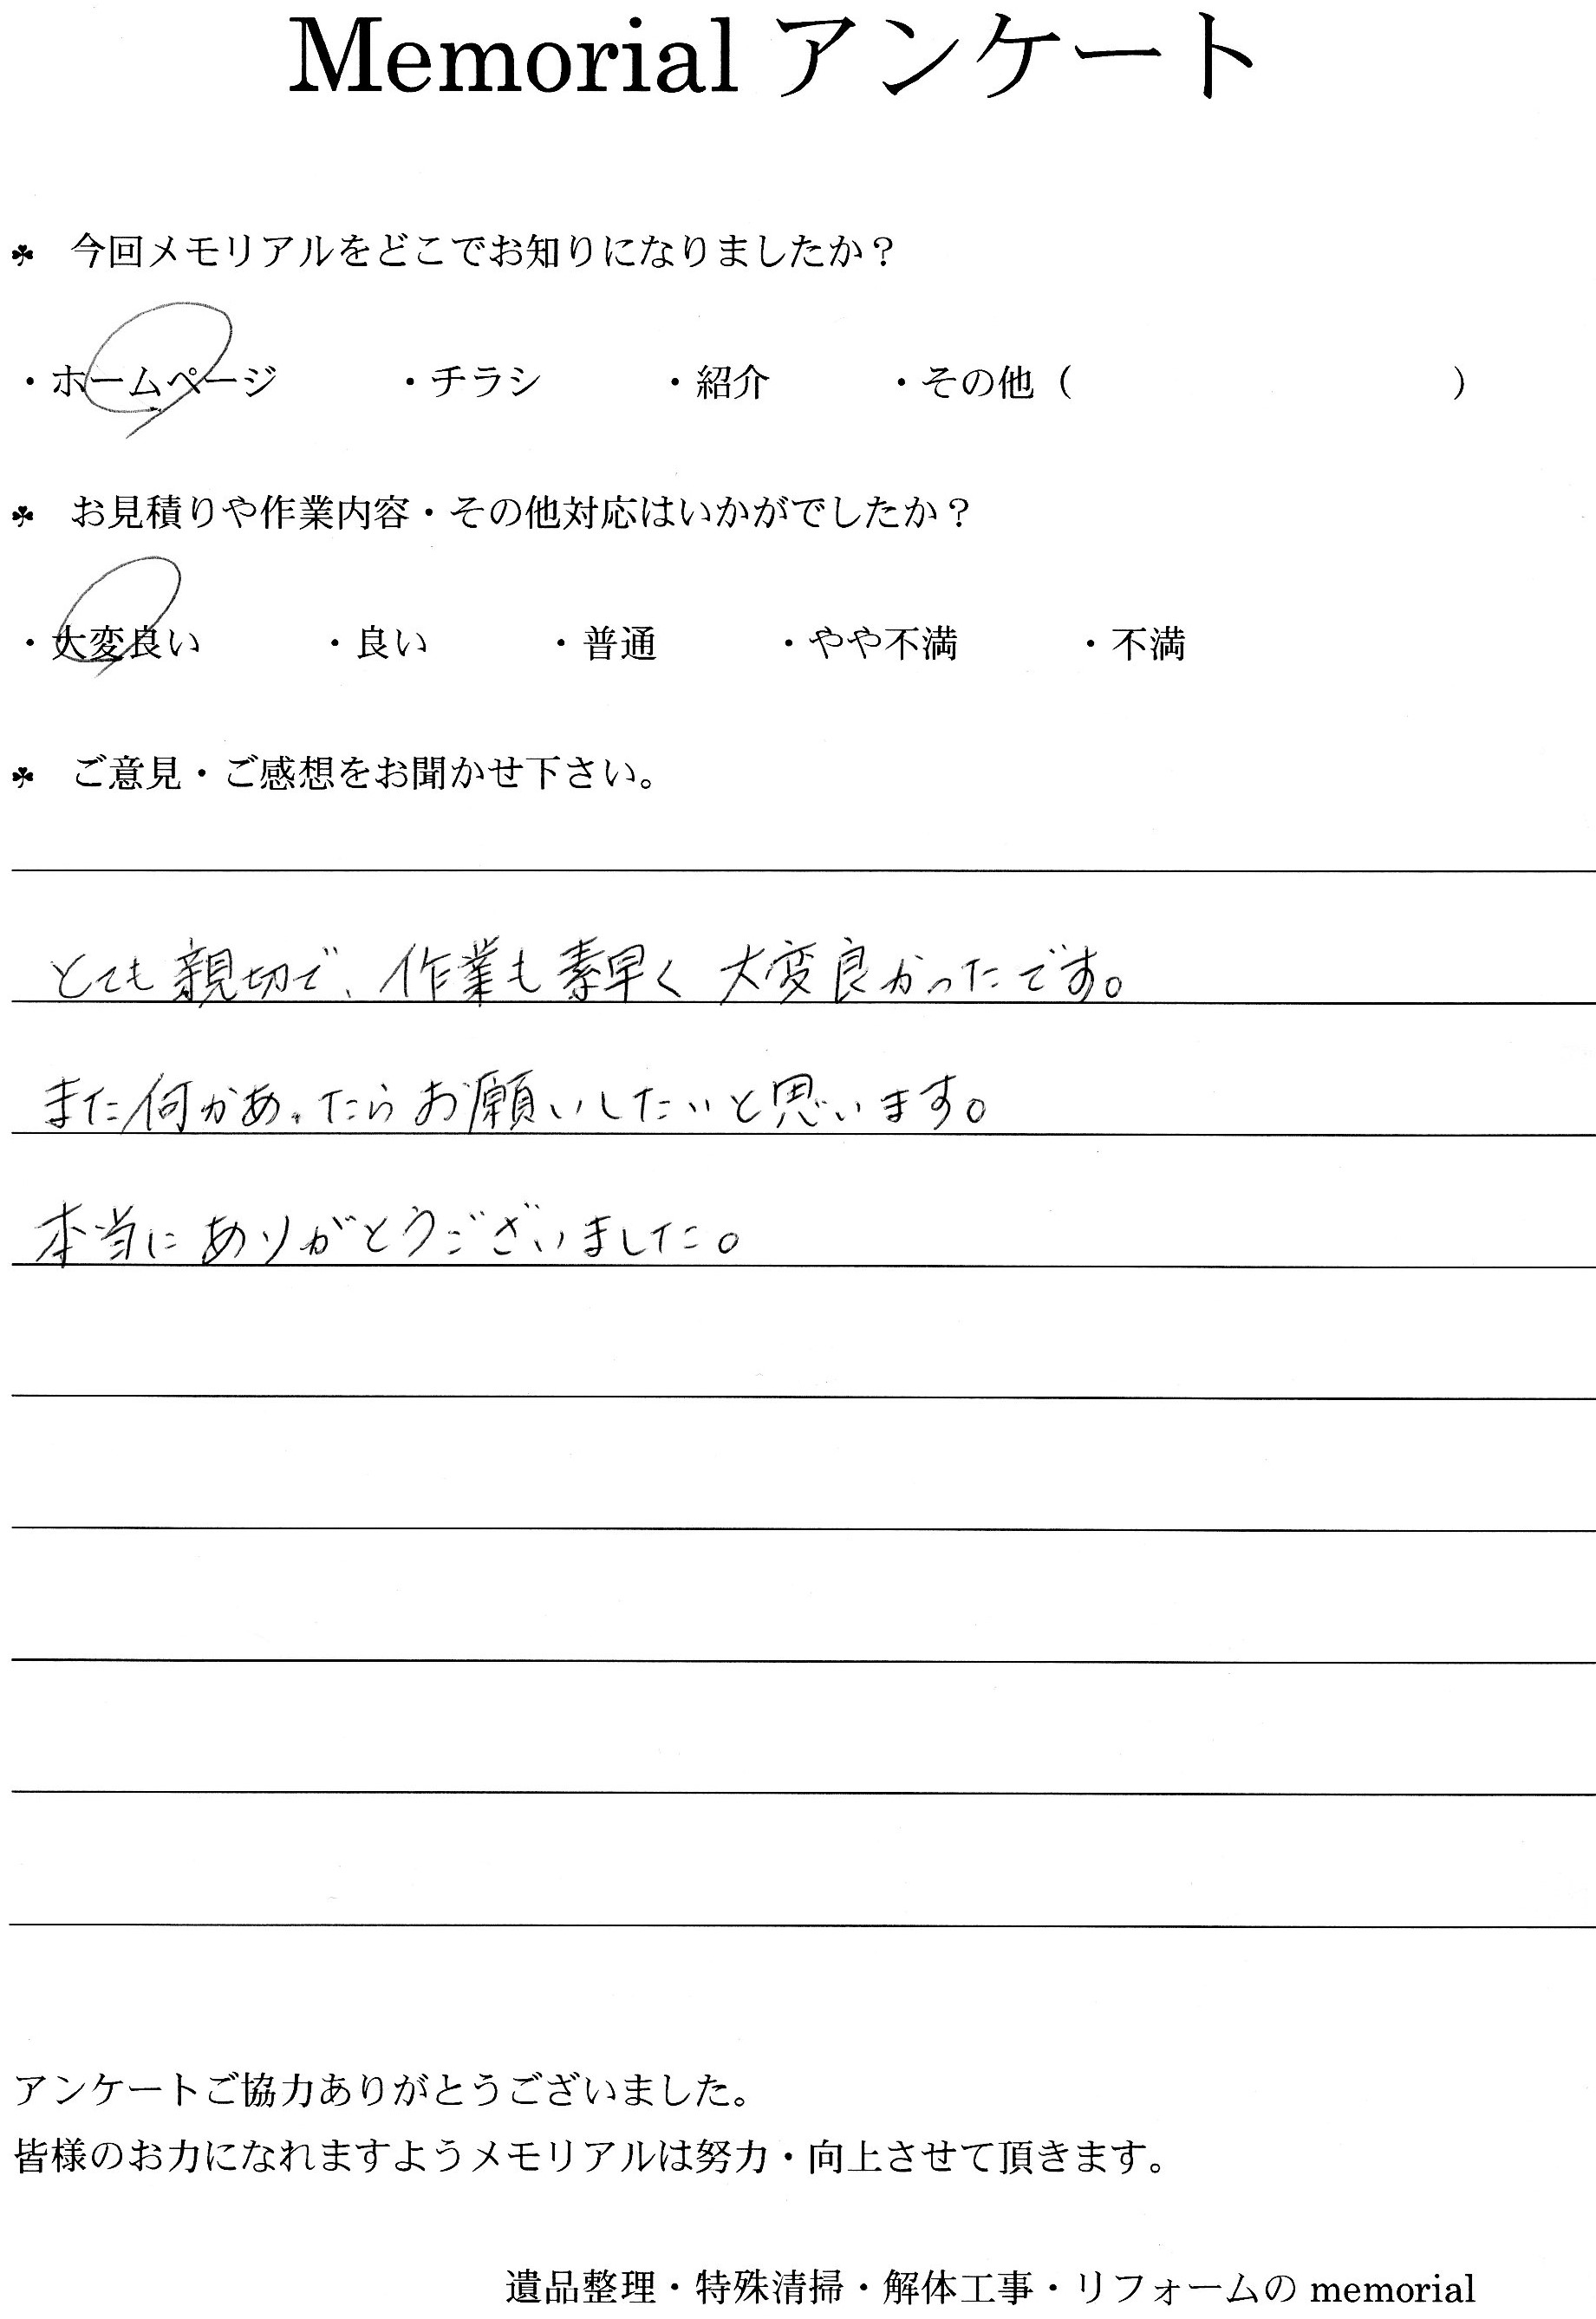 Memorial アンケート
♣ 今回メモリアルをどこでお知りになりましたか？
・ホームページ ・チラシ ・紹介 ・その他（ ）
♣ お見積りや作業内容・その他対応はいかがでしたか？
・大変良い ・良い ・普通 ・やや不満 ・不満
♣ ご意見・ご感想をお聞かせ下さい。
とても親切で、作業も素早く 大変良かったです。
また何かあったらお願いしたいと思います。
本当にありがとうございました。
アンケートご協力ありがとうございました。
皆様のお力になれますようメモリアルは努力・向上させて頂きます。
遺品整理・特殊清掃・解体工事・リフォームの memorial